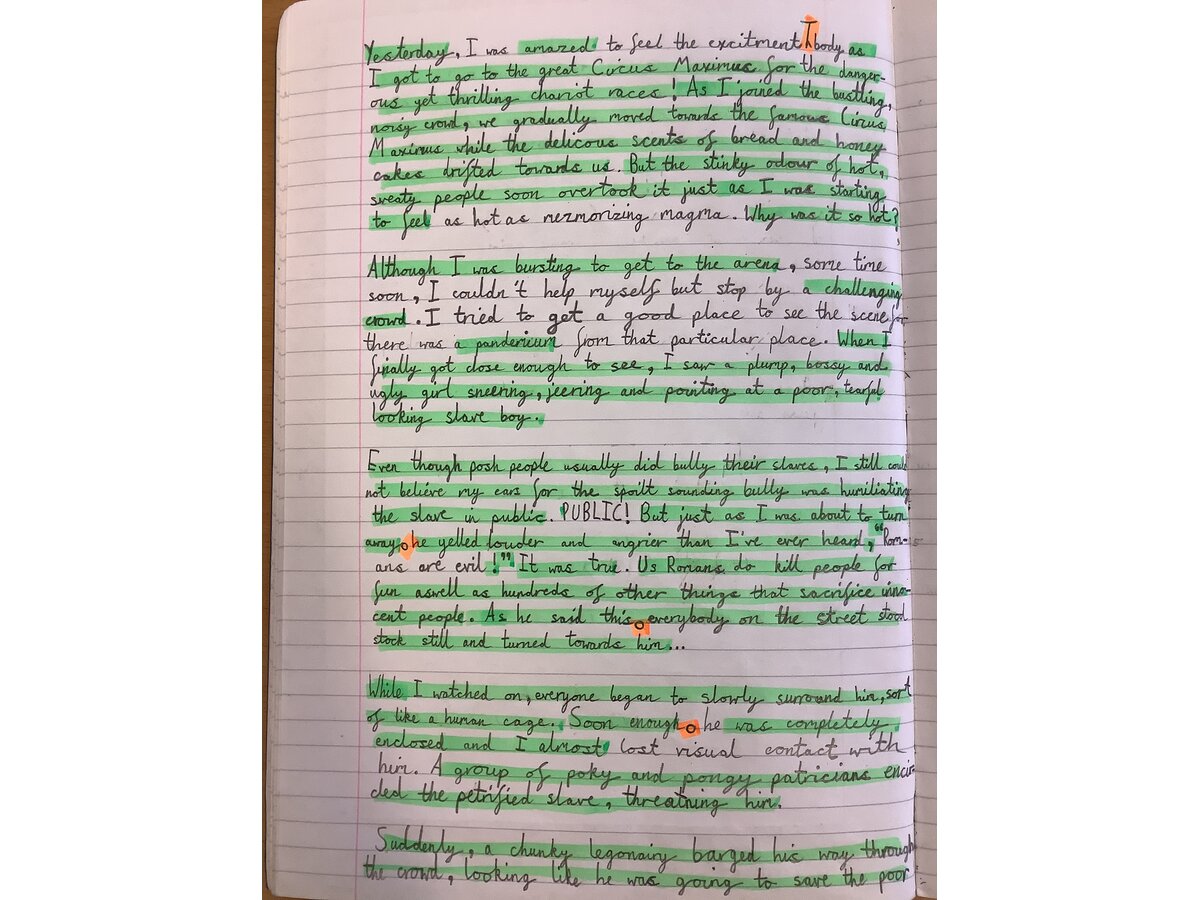 Yesterday, I was amazed to feel the excitment T body as
I got to go to the great Circus Maximus for the danger-
ous yet thrilling chariot races! As I joined the bustling,
noisy crowd, we gradually moved towards the famous Circus
Maximus while the delicous scents of bread and honey
cakes drifted towards us. But the stinky odour of hot,
sweaty people soon overtook it just as I was starting
to feel as hot as mezmorizing magma. Why was it so hot?
Although I was bursting to get to the arena, some time
soon, I couldn't help myself but stop by a challenging
crowd. I tried to get a good place to see the scene for
there was a pandemium from that particular place. When I
finally got close enough to see, I saw a plump, bossy and
ugly girl sneering, jeering and pointing at a poor, tearful
looking slave boy.
Even though posh people usually did bully their slaves, I still could
not believe my ears for the spoilt sounding bully was humiliating
the slave in public. PUBLIC! But just as I was about to turn
away, he yelled louder and angrier than I've ever heard, "Rom-
ans are evil!" It was true. Us Romans do kill people for
fun aswell as hundreds of other things that sacrifice inno-
cent people. As he said this, everybody on the street stood
stock still and turned towards him...
While I watched on, everyone began to slowly surround him, sort
of like a human cage. Soon enough, he was completely
enclosed and I almost lost visual contact with
him. A group of poky and pongy patricians encir-
cled the petrified slave, threatning him.
Suddenly, a chunky legonairy barged his way through
the crowd, looking like he was going to save the poor